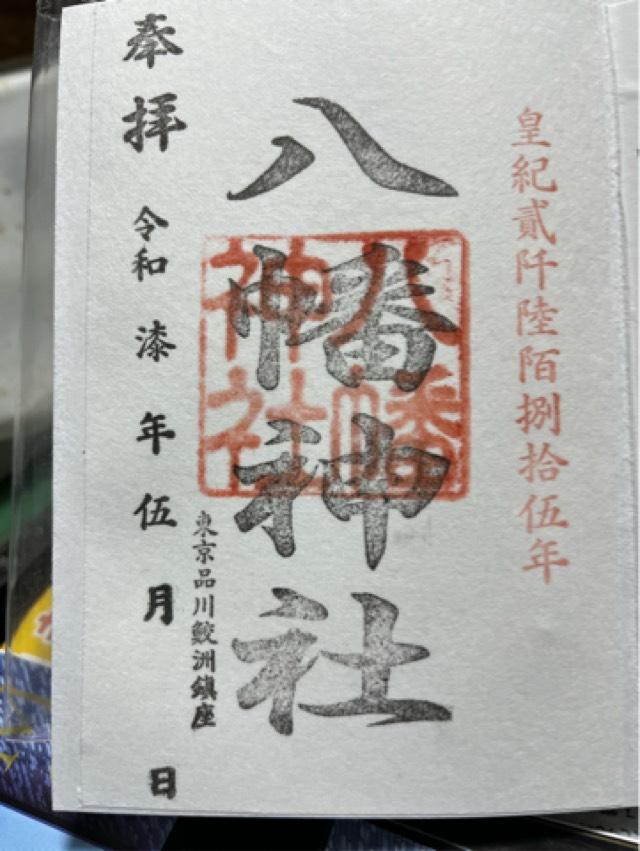 皇紀貳阡陸陌捌拾伍年
八幡神社
八幡神社
東京品川鮫洲鎮座
奉拝 令和 漆 年 伍 月 日